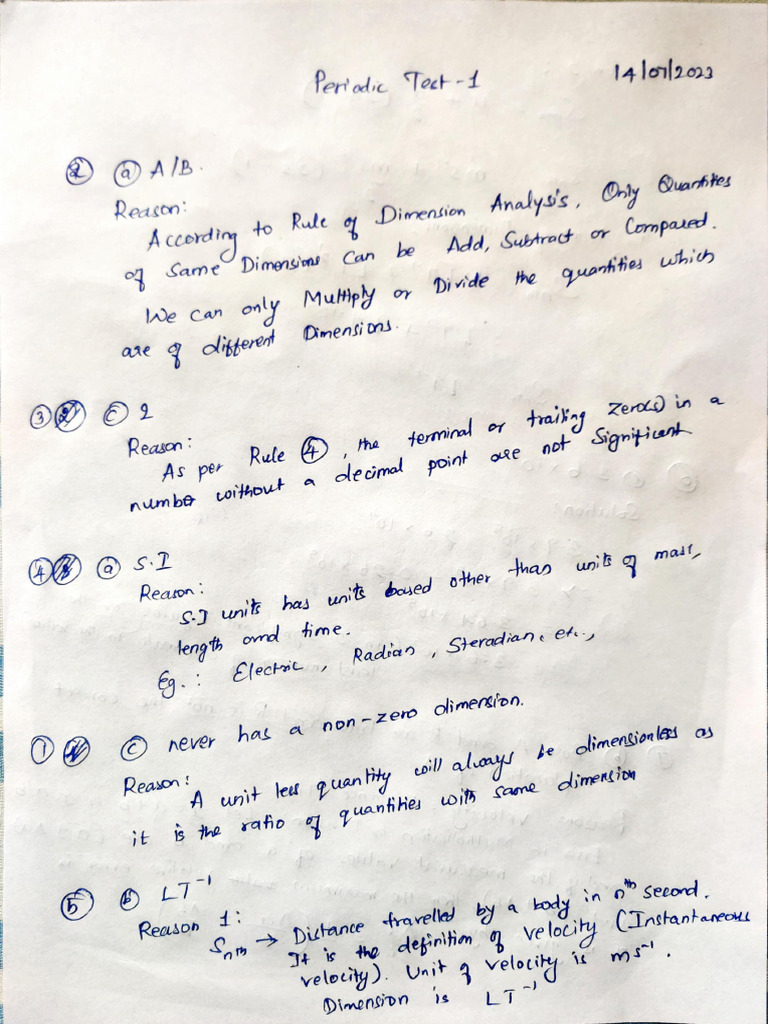 Periodic Test-1 14/07/2023
② ⓐ A/B.
Reason:
According to Rule of Dimension Analysis, Only Quantities
of Same Dimensions can be Add, Subtract or Compared.
We can only Multiply or Divide the quantities which
are of different Dimensions.
③ ⓒ 2
Reason:
As per Rule ④, the terminal or trailing zero(s) in a
number without a decimal point are not Significant
④ ⓐ S.I
Reason:
S.I units has units based other than units of mass,
length and time.
Eg.: Electric, Radian, Steradian, etc.,
① ⓒ never has a non-zero dimension.
Reason:
A unit less quantity will always be dimensionless as
it is the ratio of quantities with same dimension
⑤ ⓑ LT⁻¹
Reason 1:
Sₙₜₕ → Distance travelled by a body in nᵗʰ second.
It is the definition of velocity (Instantaneous
velocity). Unit of velocity is ms⁻¹.
Dimension is LT⁻¹